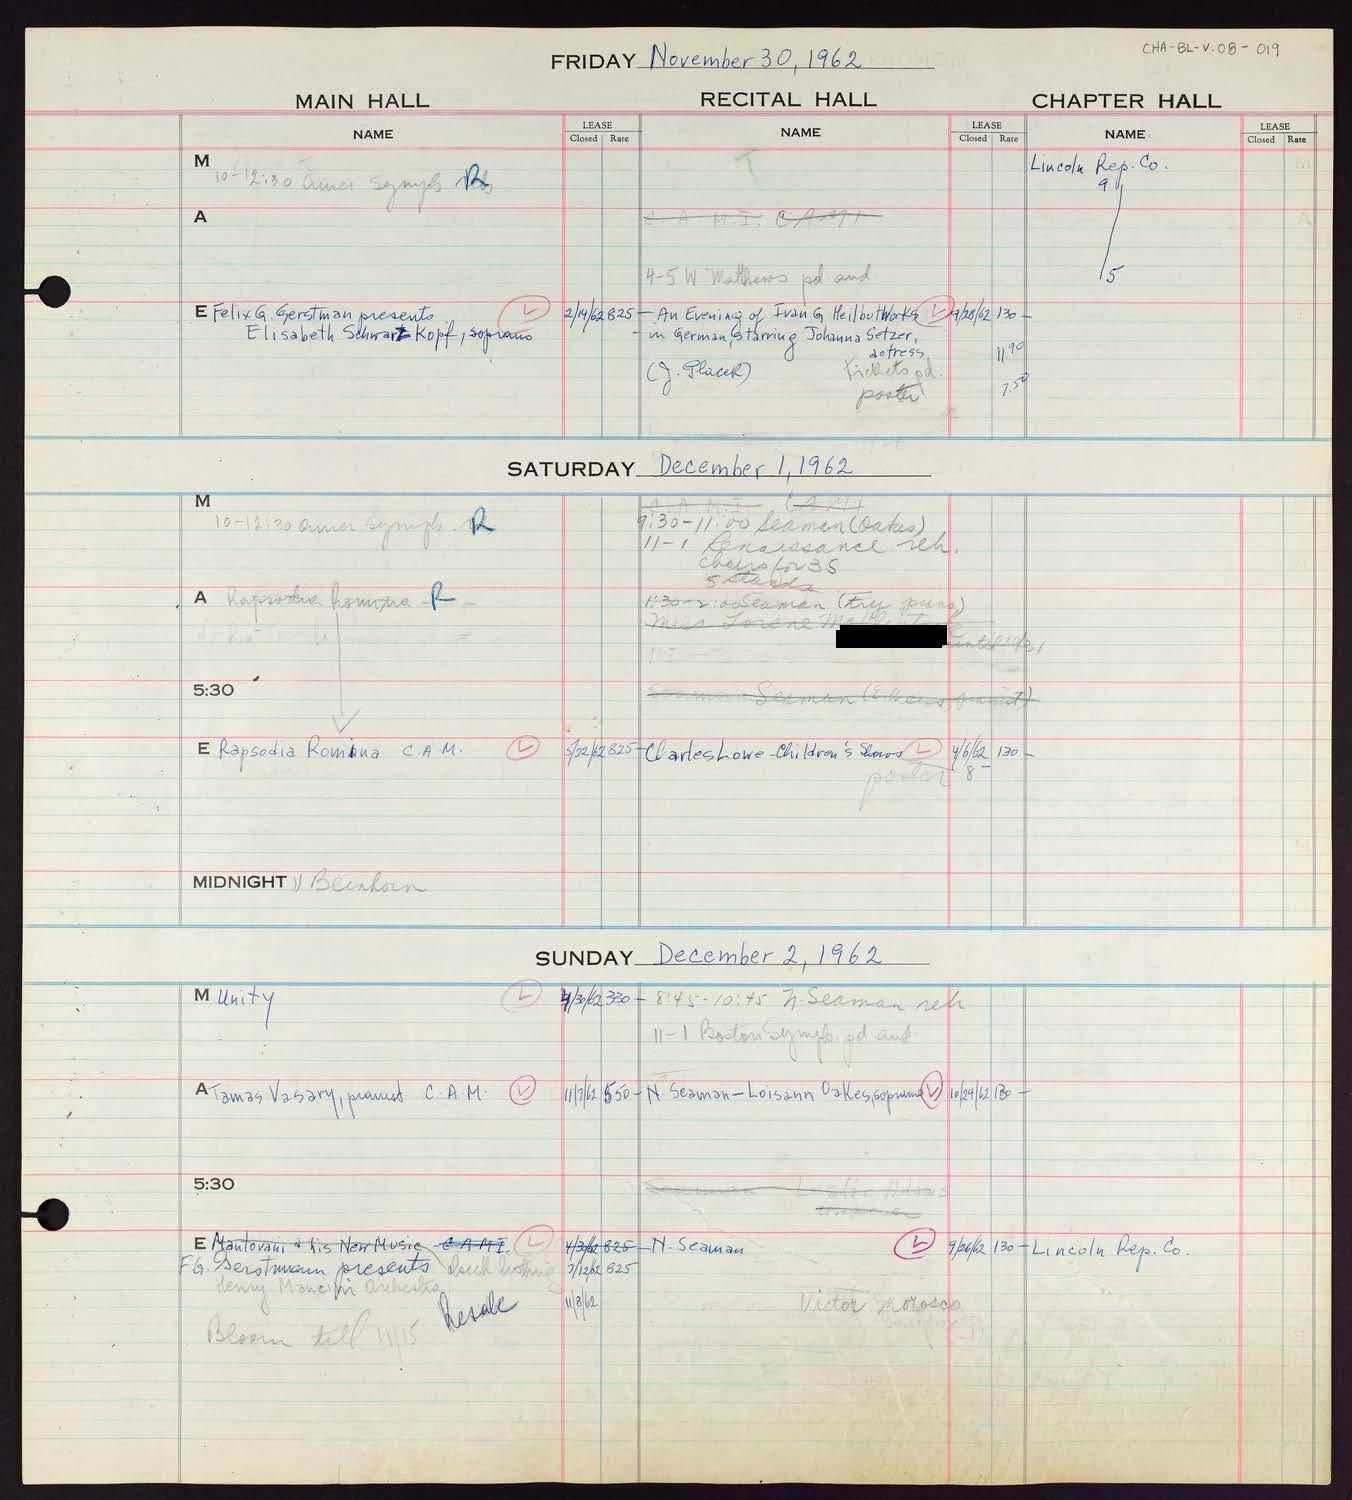 CHA-BL-V.08-019
FRIDAY November 30, 1962
MAIN HALL
RECITAL HALL
CHAPTER HALL
NAME
LEASE
Closed Rate
NAME
LEASE
Closed Rate
NAME
LEASE
Closed Rate
M
10-12:30 Amer Symph R
Lincoln Rep. Co.
9
5
A
C.A.M.I. CAMI
4-5 W Matthews pd aud
E Felix G. Gerstman presents
Elisabeth Schwartz Kopf, soprano
2/14/62 825-
An Evening of Ivan G Heilbut Works
in German, starring Johanna Setzer,
actress
(J. Placek)
tickets pd.
poster
9/28/62 130-
11.90
7.50
SATURDAY December 1, 1962
M
10-12:30 Amer Symph. R
C.A.M.I. CAMI
9:30-11:00 Seaman (Oakes)
11-1 Renaissance reh.
chairs for 35
5 stands
A Rapsodia Romina R
1:30-2:00 Seaman (try piano)
Miss Lorene
5:30
Seaman
E Rapsodia Romina C.A.M.
5/22/62 825-
Charles Lowe-Children's Shows
poster
4/6/62 130-
8-
MIDNIGHT
SUNDAY December 2, 1962
M Unity
4/30/62 330-
8:45-10:45 N-Seaman reh
11-1 Boston Symph. pd aud
A Tamas Vasary, pianist C.A.M.
11/7/62 550-
N. Seaman-Loisann Oakes, soprano
10/24/62 130-
5:30
Seaman
E Mantovani & his New Music C A M I
4/30/62 825-
N-Seaman
9/26/62 130-
Lincoln Rep. Co.
F.G. Gerstmann presents
7/12/62 825
Henry Mancini Orchestra
11/8/62
Resale
Victor Morosco
Bloom till 11/15